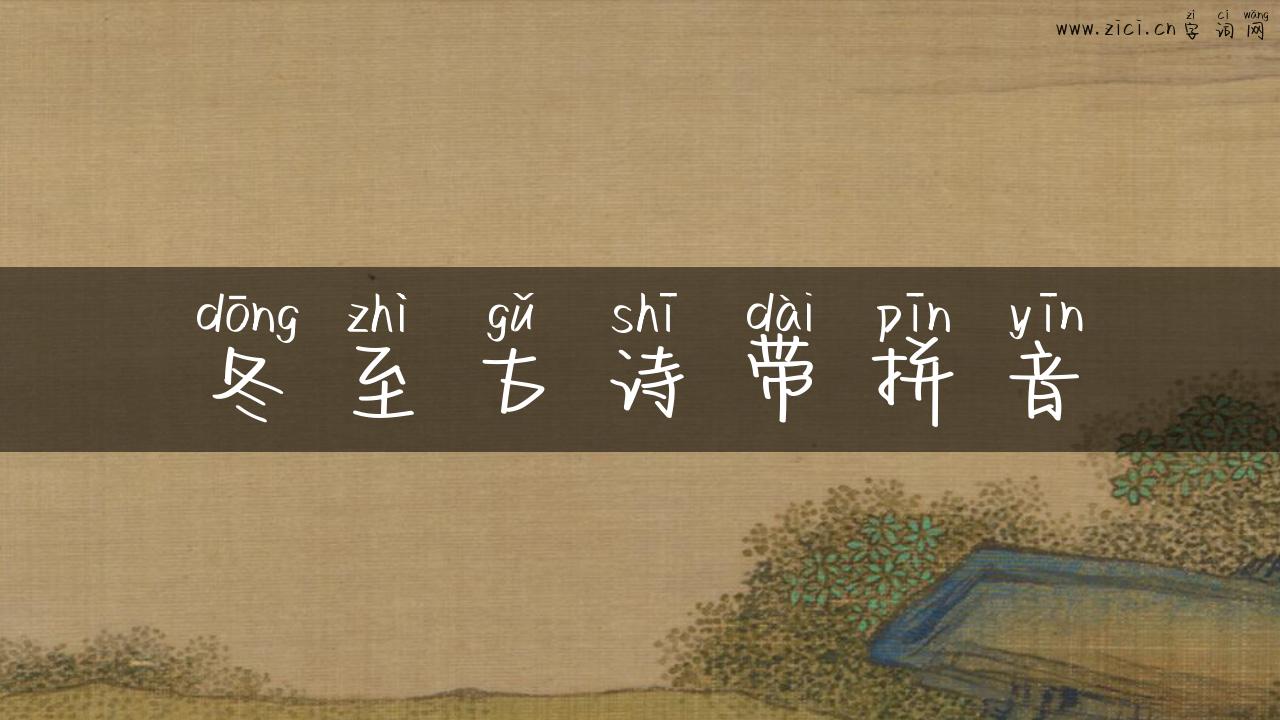 zì cí wǎng
www.zici.cn 字 词 网
dōng zhì gǔ shī dài pīn yīn
冬 至 古 诗 带 拼 音